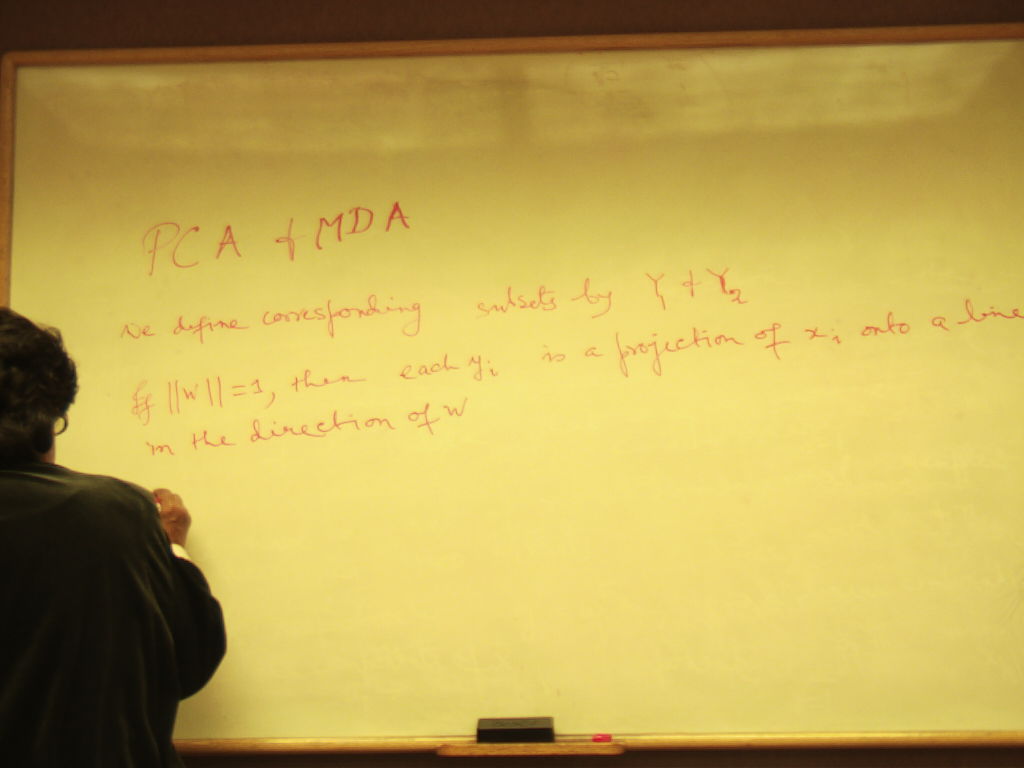 PCA & MDA
We define corresponding subsets by Y₁ & Y₂
If ||W||=1, then each yᵢ is a projection of xᵢ onto a line
in the direction of W